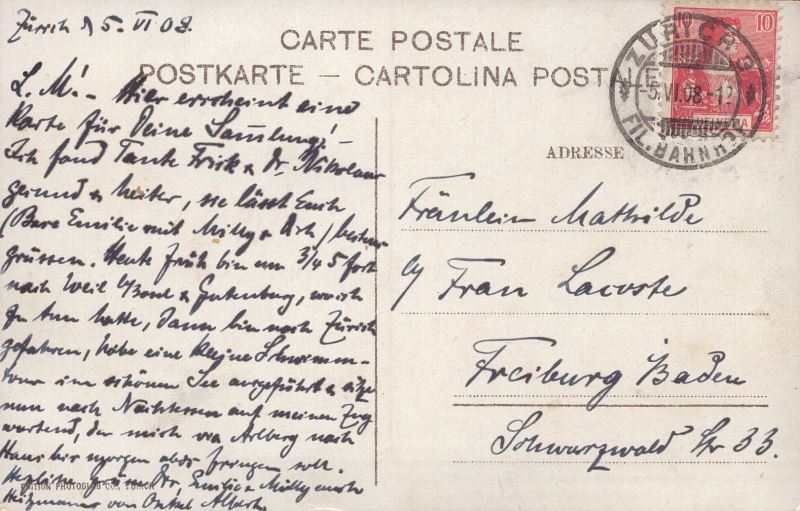 Zürich d 5. VI 08.
CARTE POSTALE
POSTKARTE – CARTOLINA POSTALE
L. M! – Hier erscheint eine
Karte für Deine Samlung! –
Ich fand Tante Frick & Dr. Nikolaus
gesund & heiter, sie lässt Euch
(Base Emilie mit Milly & Dich) bestens
grüssen. Heute früh bin um 3/4 5 fort
nach Weil b/Basel & Gutenburg, wo ich
zu tun hatte, dann bin nach Zürich
gefahren, habe eine kleine Schwimm-
tour im schönen See ausgeführt & sitze
nun nach Nachtessen auf meinen Zug
wartend, der mich via Arlberg nach
Haus bis morgen abds bringen soll.
Herzliche Grüsse Dir, Emilie & Milly auch
von Onkel Albert.
EDITION PHOTOGLOB CO., ZÜRICH
10
HELVETIA
ZÜRICH
5.VI.08.-12
FIL. BAHNHOF
ADRESSE
Fräulein Mathilde
b/ Frau Lacoste
Freiburg Baden
Schwarzwald Str 33.